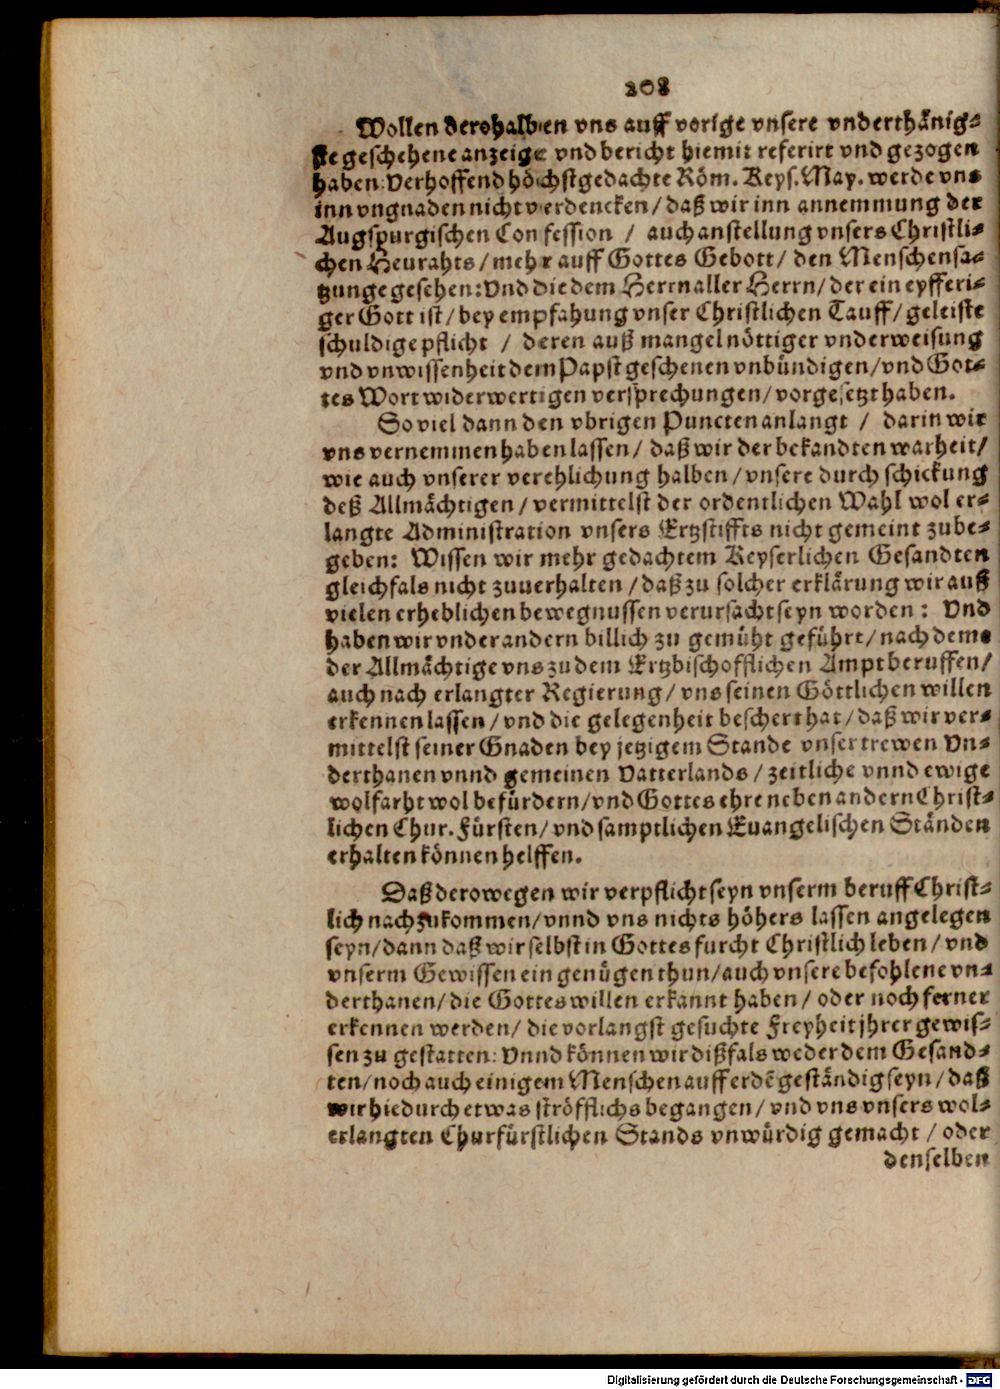 208
Wollen derohalben vns auff vorige vnsere vnderthänig-
ste geschehene anzeige vnd bericht hiemit referirt vnd gezogen
haben: Verhoffend höchstgedachte Röm. Keys. May. werde vns
inn vngnaden nicht verdencken / daß wir inn annemmung der
Augspurgischen Confession / auch anstellung vnsers Christli-
chen Heurahts / mehr auff Gottes Gebott / den Menschensa-
tzunge gesehen: Vnd die dem Herrn aller Herrn / der ein eyfferi-
ger Gott ist / bey empfahung vnser Christlichen Tauff / geleiste
schuldige pflicht / deren auß mangel nöttiger vnderweisung
vnd vnwissenheit dem Papst geschenen vnbündigen / vnd Got-
tes Wort widerwertigen versprechungen / vorgesetzt haben.
So viel dann den vbrigen Puncten anlangt / darin wir
vns vernemmen haben lassen / daß wir der bekandten warheit /
wie auch vnserer verehlichung halben / vnsere durch schickung
deß Allmächtigen / vermittelst der ordentlichen Wahl wol er-
langte Administration vnsers Ertzstiffts nicht gemeint zube-
geben: Wissen wir mehr gedachtem Keyserlichen Gesandten
gleichfals nicht zuuerhalten / daß zu solcher erklärung wir auß
vielen erheblichen bewegnussen verursacht seyn worden: Vnd
haben wir vnder andern billich zu gemüht geführt / nach deme
der Allmächtige vns zu dem Ertzbischofflichen Ampt beruffen /
auch nach erlangter Regierung / vns seinen Göttlichen willen
erkennen lassen / vnd die gelegenheit beschert hat / daß wir ver-
mittelst seiner Gnaden bey jetzigem Stande vnser trewen Vn-
derthanen vnnd gemeinen Vatterlands / zeitliche vnnd ewige
wolfarht wol befürdern / vnd Gottes ehre neben andern Christ-
lichen Chur. Fürsten / vnd samptlichen Euangelischen Ständen
erhalten können helffen.
Daß derowegen wir verpflicht seyn vnserm beruff Christ-
lich nachzukommen / vnnd vns nichts höhers lassen angelegen
seyn / dann daß wir selbst in Gottes furcht Christlich leben / vnd
vnserm Gewissen ein genügen thun / auch vnsere befohlene vn-
derthanen / die Gottes willen erkannt haben / oder noch ferner
erkennen werden / die vorlangst gesuchte Freyheit jhrer gewis-
sen zu gestatten: Vnnd können wir dißfals weder dem Gesand-
ten / noch auch einigem Menschen auff erdẽ geständig seyn / daß
wir hiedurch etwas ströfflichs begangen / vnd vns vnsers wol-
erlangten Churfürstlichen Stands vnwürdig gemacht / oder
denselben
Digitalisierung gefördert durch die Deutsche Forschungsgemeinschaft - DFG